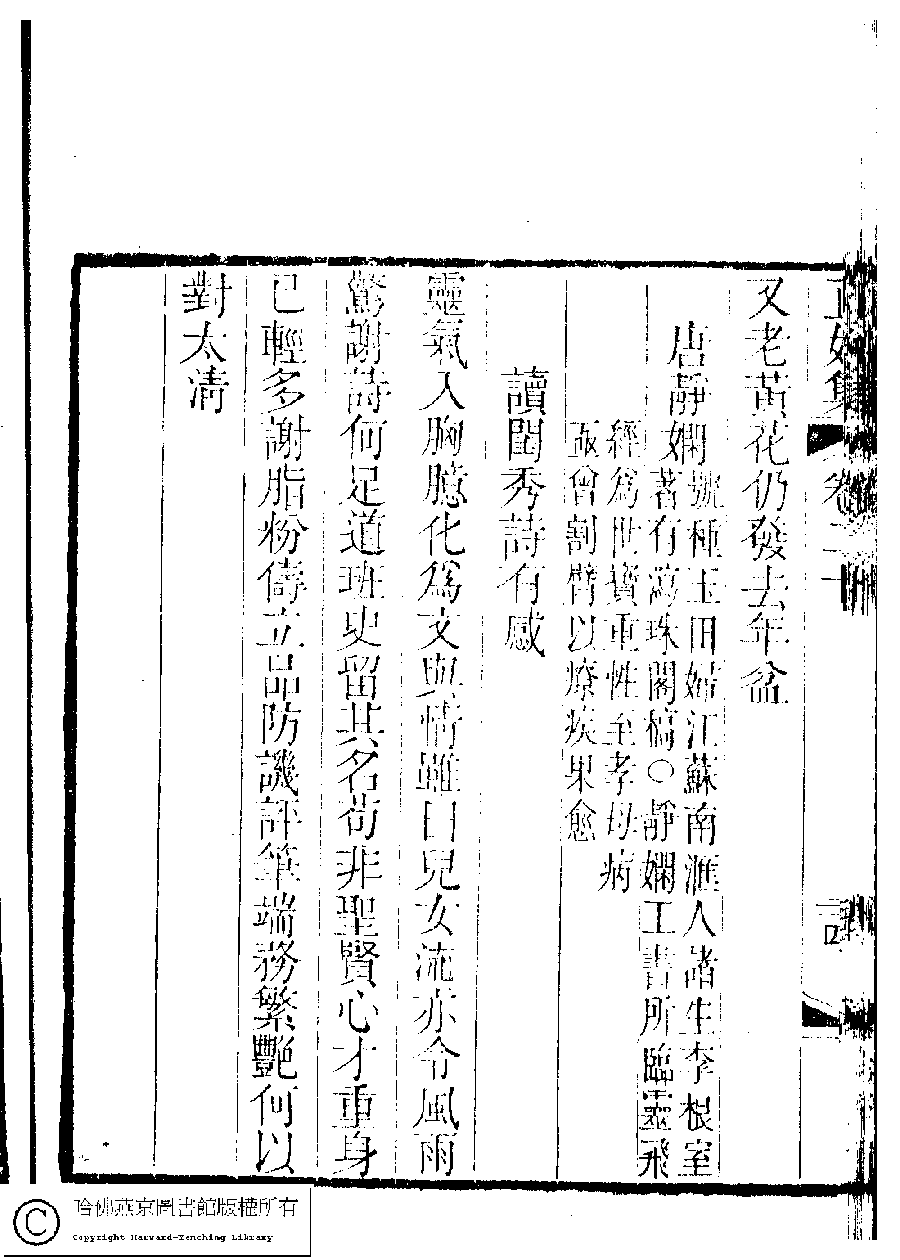 正始集 卷二十
又老黃花仍發去年盆
唐靜嫻
號種玉田婦江蘇南滙人諸生李根室
著有珠閣槁○靜嫻工書所臨靈飛
經爲世寶重性至孝母病
亟曾割臂以療疾果愈
讀閨秀詩有感
靈氣入胸臆化爲文與情雖曰兒女流亦令風雨
驚謝詩何足道班史留其名苟非聖賢心才重身
已輕多謝脂粉儔立品防譏評筆端務繁艷何以
對太淸
哈佛燕京圖書館版權所有
Copyright Harvard-Yenching Library